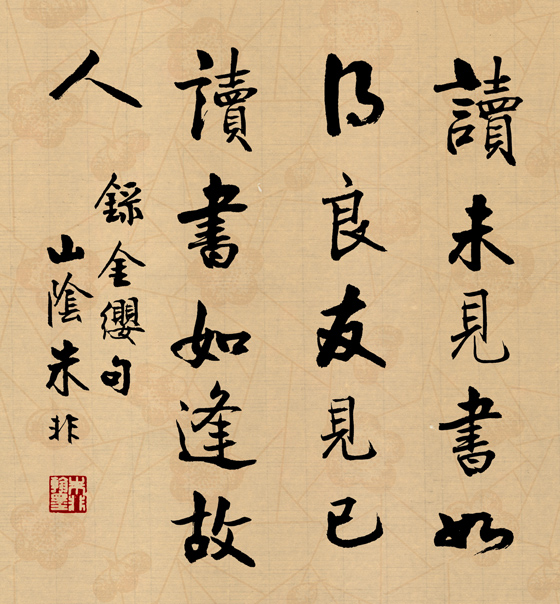 讀未見書如
得良友見已
讀書如逢故
人
錄金纓句
山陰朱非
朱非
翰墨